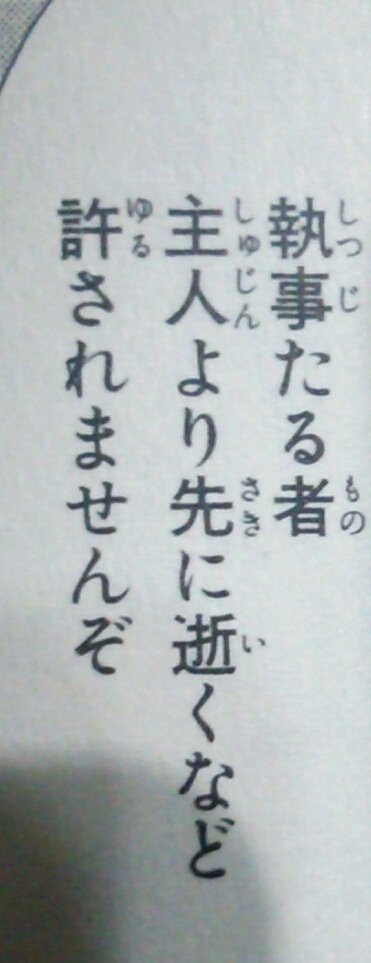 執事たる者
主人より先に逝くなど
許されませんぞ